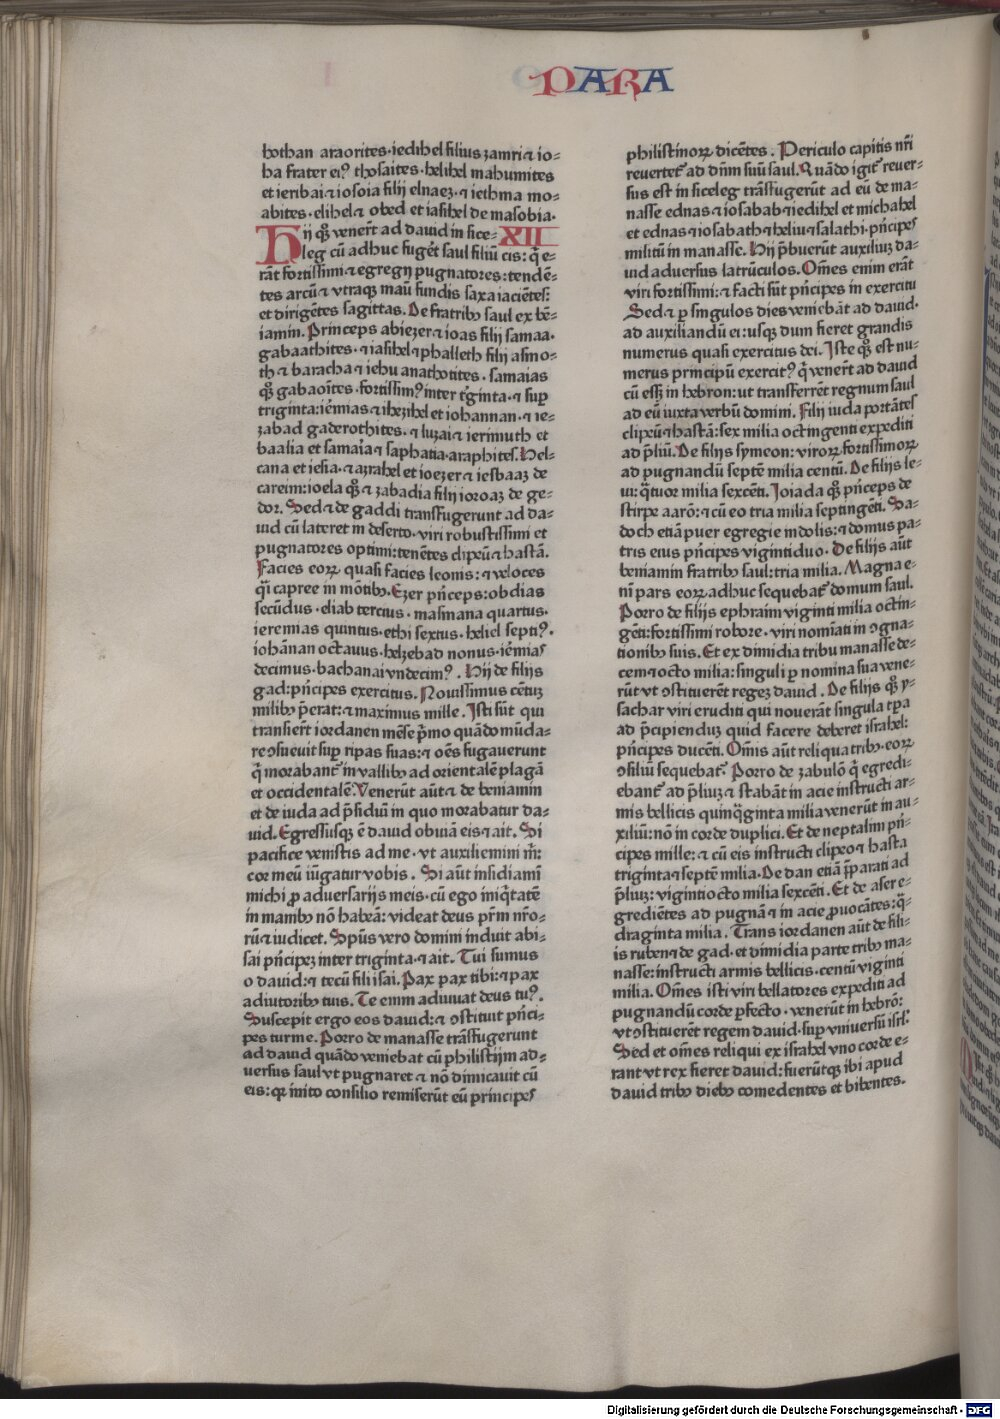 PARA
hothan araorites·iedihel filius zamri ⁊ io⸗
ha frater ei⁹ thosaites·helihel mahumites
et ieribai ⁊ iosoia filij elnaez·⁊ iethma mo⸗
abites·elihel ⁊ obed et iasihel de masobia·
Hij qq̄ venert̄ ad dauid in sice⸗ XII
leg cū adhuc fugēt saul filiū cis: q̄ e⸗
rāt fortissimi ⁊ egregij pugnatores: tendē⸗
tes arcū ⁊ vtraqꝫ manu fundis saxa iaciētes:
et dirigētes sagittas. De fratribꝰ saul ex bē⸗
iamin. Princeps abiezer ⁊ ioas filij samaa·
gabaathites·⁊ iasihel ⁊ phalleth filij asmo⸗
th ⁊ baracha ⁊ iehu anathotites·samaias
qq̄ gabaoītes·fortissim⁹ inter tͥginta·⁊ suꝑ
triginta: iēmias ⁊ ihezihel et iohannan·⁊ ie⸗
zabad gaderothites·⁊ luzai ⁊ ierimuth et
baalia et samaia ⁊ saphatia·araphites. Hel⸗
cana et iesia·⁊ azrahel et ioezer ⁊ iesbaaz de
careim: ioela qq̄ ⁊ zabadia filij ioroaz de ge⸗
dor. Sed ⁊ de gaddi transfugerunt ad da⸗
uid cū lateret in deserto·viri robustissimi et
pugnatores optimi: tenētes clipeū ⁊ hastā.
Facies eoꝝ quasi facies leonis: ⁊ veloces
qͥ capree in mōtibꝰ. Ezer pͥnceps: obdias
secūdus·eliab tercius·masmana quartus·
ieremias quintus·ethi sextus·heliel septi⁹·
iohānan octauus·helzebad nonus·iēmias
decimus·bachanai vndecim⁹. Hij de filijs
gad: pͥncipes exercitus. Nouissimus cētuꝫ
milibꝰ p̄erat: ⁊ maximus mille. Isti sūt qui
transierūt iordanen mēse pͥmo quādo mūda⸗
re ꝯsueuit suꝑ ripas suas: ⁊ oēs fugauerunt
q̄ morabant᷑ in vallibꝰ ad orientalē plagā
et occidentalē. Venerūt aūt ⁊ de beniamin
et de iuda ad p̄sidiū in quo morabatur da⸗
uid. Egressusqꝫ ē dauid obuiā eis ⁊ ait. Si
pacifice venistis ad me·vt auxiliemini m̄:
cor meū iūgatur vobis. Si aūt insidiamī
michi ꝓ aduersarijs meis·cū ego iniqͥtatē
in manibꝰ nō habeā: videat deus prm̄ nr̄o⸗
rū ⁊ iudicet. Spūs vero domini induit abi⸗
sai pͥncipeꝫ inter triginta·⁊ ait. Tui sumus
o dauid: ⁊ tecū fili isai. Pax pax tibi: ⁊ pax
adiutoribꝰ tuis. Te enim adiuuat deus tu⁹.
Suscepit ergo eos dauid: ⁊ ꝯstituit pͥnci⸗
pes turme. Porro de manasse trāsfugerunt
ad dauid quādo veniebat cū philistijm ad⸗
uersus saul vt pugnaret ⁊ nō dimicauit cū
eis: qꝛ inito consilio remiserūt eū principes
philistinoꝝ dicētes. Periculo capitis nr̄i
reuertet᷑ ad dn̄m suū saul. Quādo igit᷑ reuer⸗
sus est in siceleg trāsfugerūt ad eū de ma⸗
nasse ednas ⁊ iosabab ⁊ iedihel et michahel
et ednas ⁊ iosabath ⁊ heliu ⁊ salathi·pͥncipes
militū in manasse. Hij p̄buerūt auxiliuꝫ da⸗
uid aduersus latrūculos. Om̄es enim erāt
viri fortissimi: ⁊ facti sūt pͥncipes in exercitu
Sed ⁊ ꝑ singulos dies veniebāt ad dauid·
ad auxiliandū ei: usqꝫ dum fieret grandis
numerus quasi exercitus dei. Iste qq̄ est nu⸗
merus principū exercit⁹ q̄ venerūt ad dauid
cū esset in hebron: ut transferrēt regnum saul
ad eū iuxta verbū domini. Filij iuda portātes
clipeū ⁊ hastā: sex milia octingenti expediti
ad p̄liū. De filijs symeon: viroꝝ fortissimoꝝ
ad pugnandū septē milia centū. De filijs le⸗
ui: q̄tuor milia sexcēti. Ioiada qq̄ pͥnceps de
stirpe aarō: ⁊ cū eo tria milia septingēti. Sa⸗
doch etiā puer egregie indolis: ⁊ domus pa⸗
tris eius pͥncipes vigintiduo. De filijs aūt
beniamin fratribꝰ saul: tria milia. Magna e⸗
ni pars eoꝝ adhuc sequebat᷑ domum saul.
Porro de filijs ephraim viginti milia octin⸗
gēti: fortissimi robore·viri nominati in ꝯgna⸗
tionibꝰ suis. Et ex dimidia tribu manasse de⸗
cem ⁊ octo milia: singuli ꝑ nomina sua vene⸗
rūt vt ꝯstituerēt regeꝫ dauid. De filijs qq̄ y⸗
sachar viri eruditi qui nouerāt singula tꝑa
ad p̄cipienduꝫ quid facere deberet israhel:
pͥncipes ducēti. Om̄is aūt reliqua tribꝰ eoꝝ
ꝯsiliū sequebat᷑. Porro de zabulō q̄ egredi⸗
ebant᷑ ad p̄liuꝫ ⁊ stabāt in acie instructi ar⸗
mis bellicis quinq̄ginta milia venerūt in au⸗
xiliū: nō in corde duplici. Et de neptalim pͥn⸗
cipes mille: ⁊ cū eis instructi clipeo ⁊ hasta
triginta ⁊ septē milia. De dan etiā p̄parati ad
p̄liuꝫ: vigintiocto milia sexcēti. Et de aser e⸗
grediētes ad pugnā ⁊ in acie ꝓuocātes: q̄⸗
draginta milia. Trans iordanen aūt de fili⸗
is ruben ⁊ de gad·et dimidia parte tribꝰ ma⸗
nasse: instructi armis bellicis·centū viginti
milia. Om̄es isti viri bellatores expediti ad
pugnandū corde ꝑfecto·venerūt in hebrō:
vt ꝯstituerēt regem dauid·suꝑ vniuersū isrl̄.
Sed et om̄es reliqui ex israhel vno corde e⸗
rant vt rex fieret dauid: fuerūtqꝫ ibi apud
dauid tribꝰ diebꝰ comedentes et bibentes.
Digitalisierung gefördert durch die Deutsche Forschungsgemeinschaft - DFG